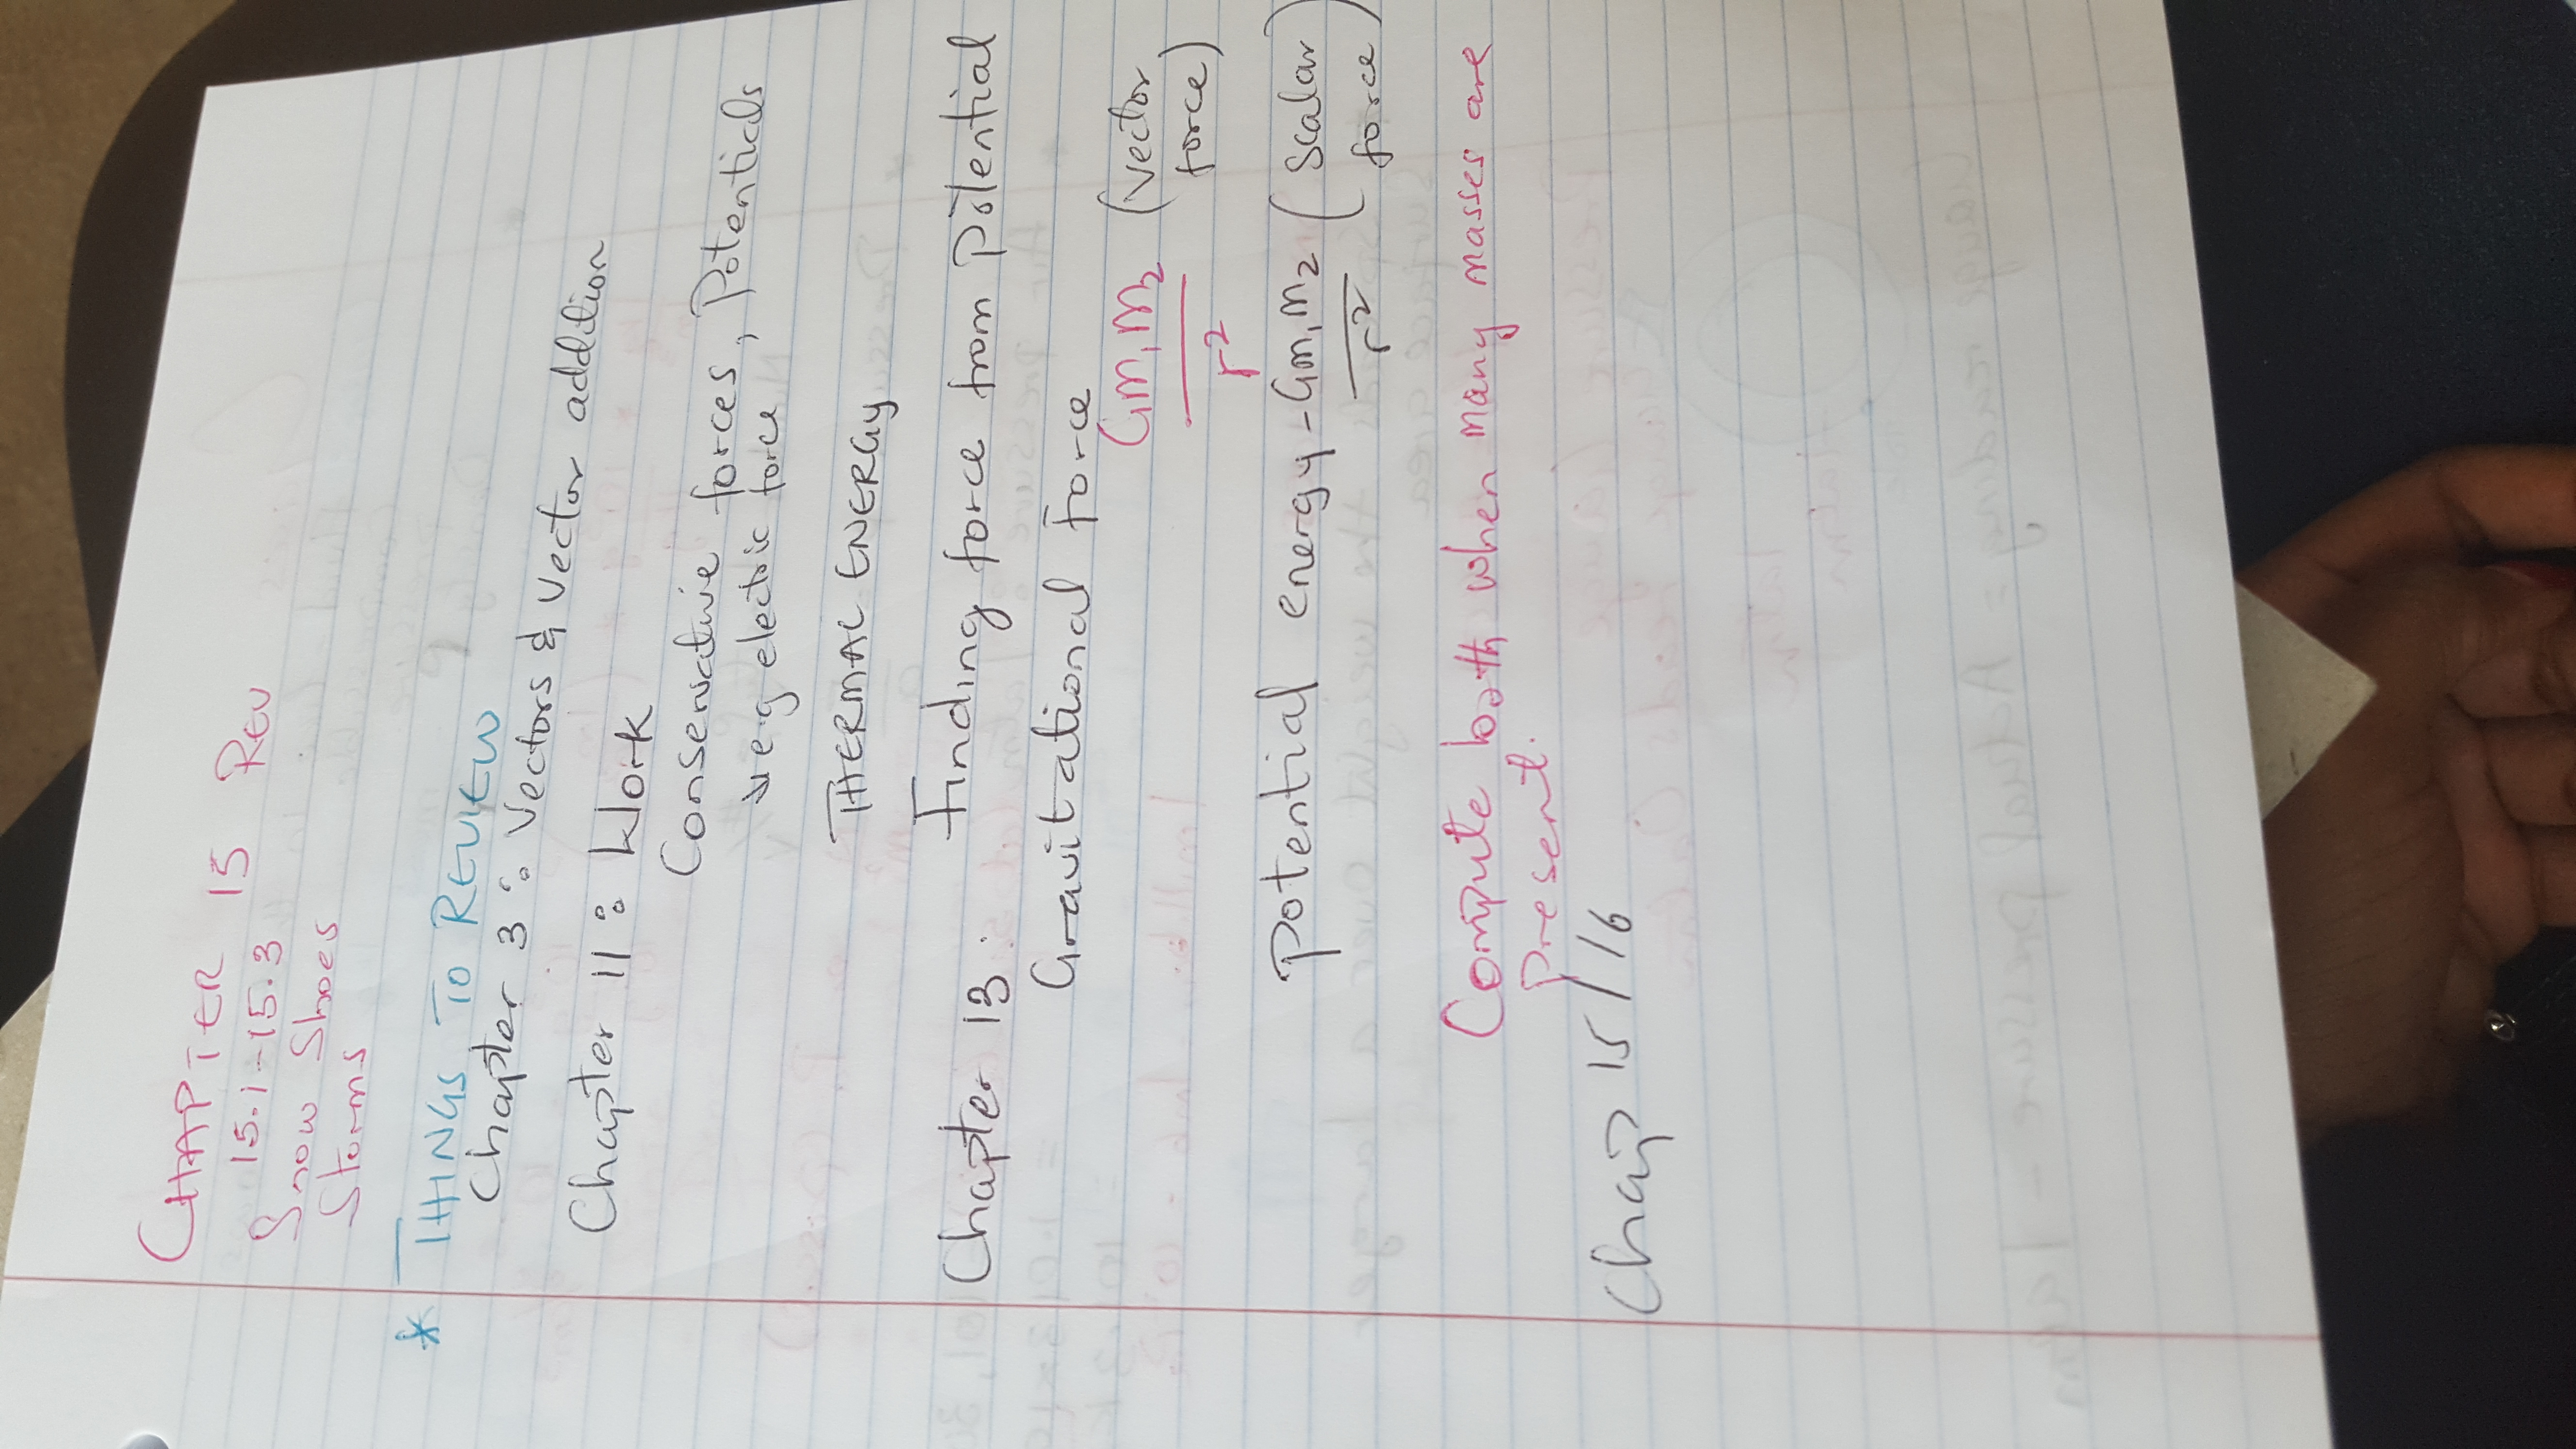 CHAPTER 15 REV
15.1-15.3
Snow Shoes
Storms
* THINGS TO REVIEW
Chapter 3: Vectors & Vector addition
Chapter 11: Work
Conservative forces, Potentials
e.g electric force
THERMAL ENERGY
Chapter 13: Finding force from Potential
Gravitational Force
Gm₁m₂ (vector
r² force)
Potential energy -Gm₁m₂ (scalar
r² force)
Compute both when many masses are
Present.
Chap 15/16